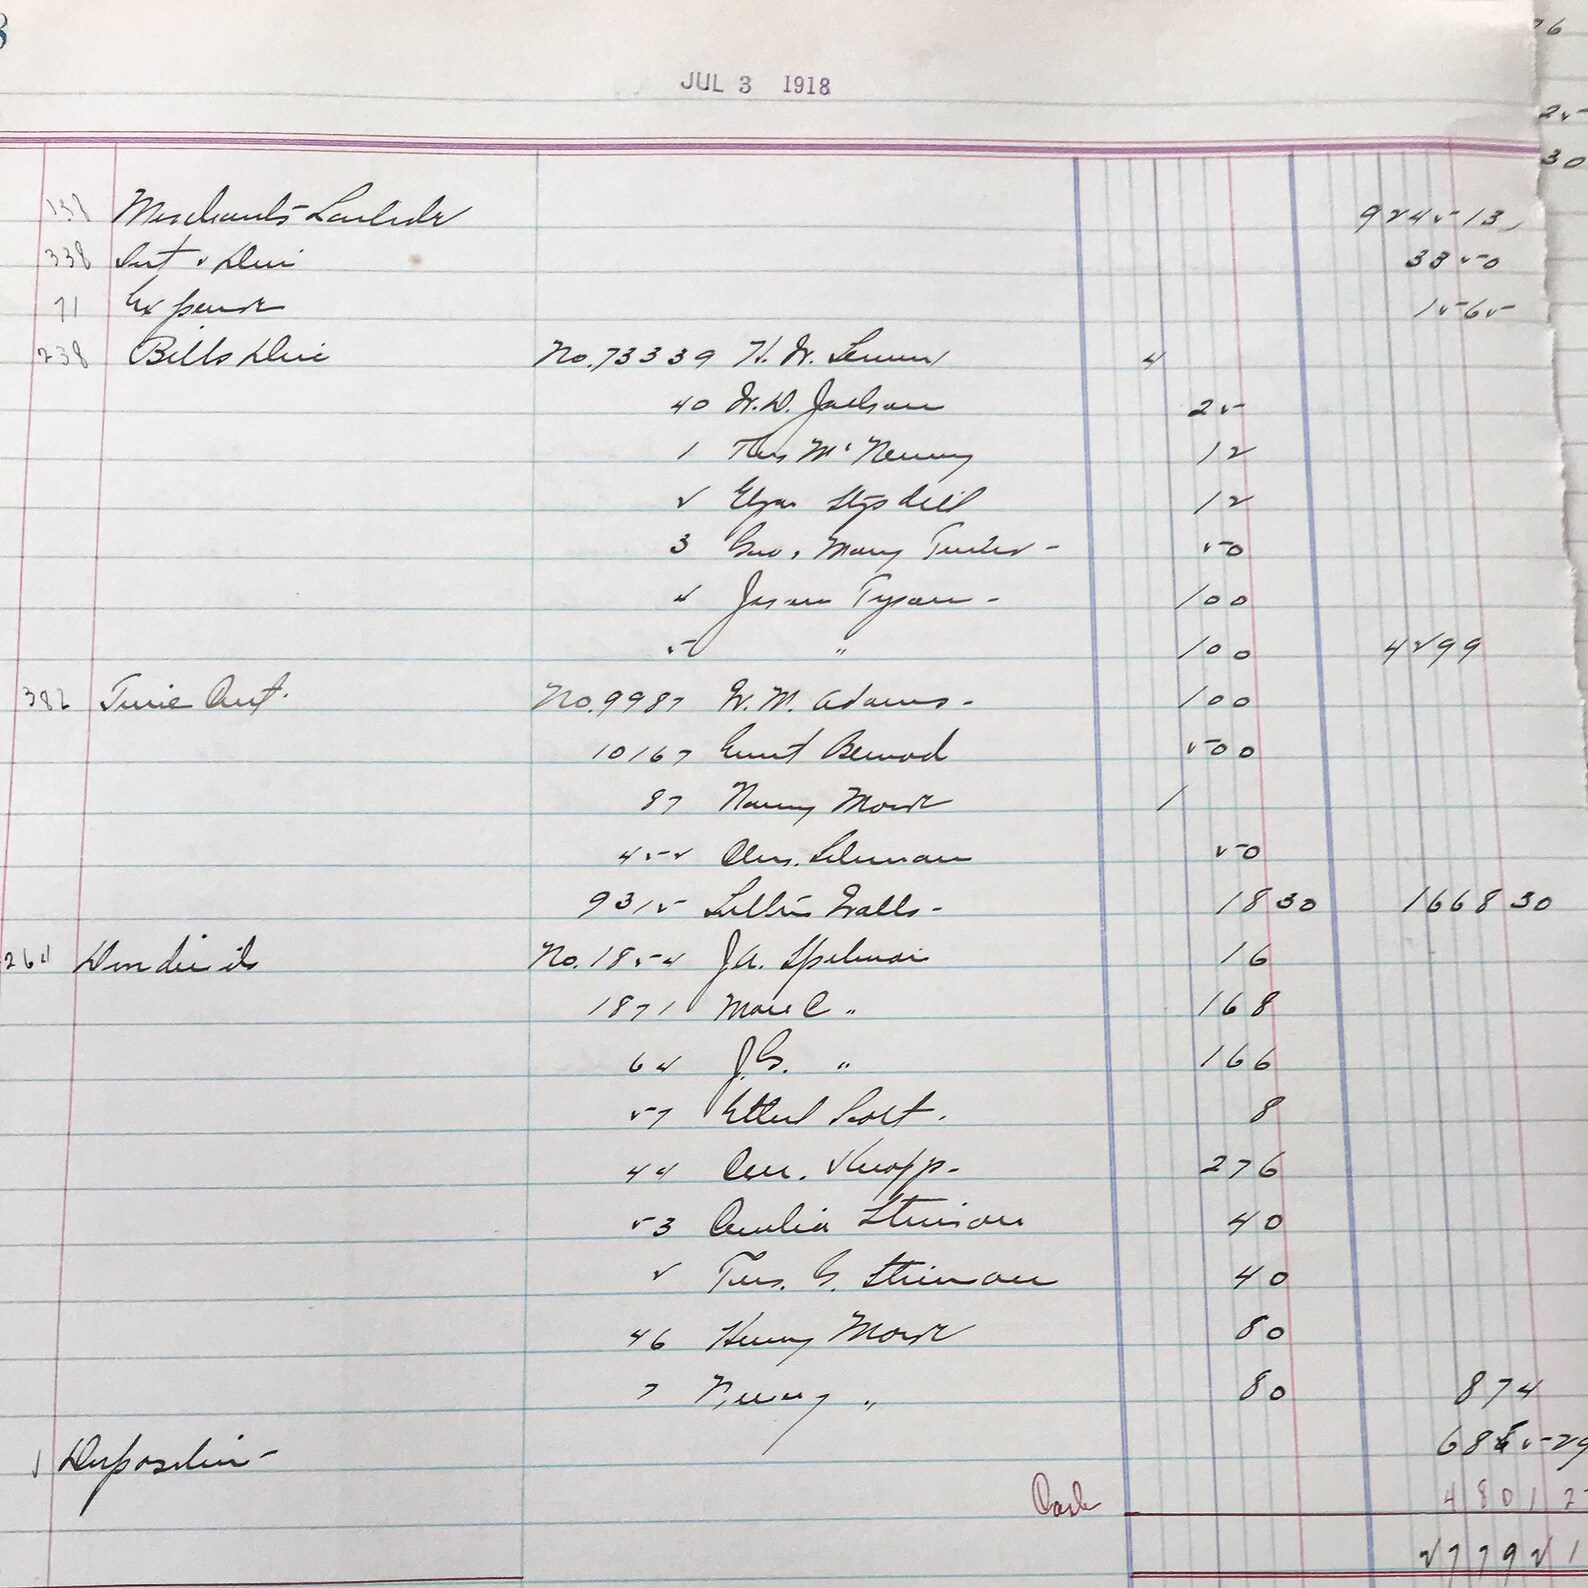 JUL 3 1918
138 Merchants-Laclede 924513
338 Int & Disc 3350
71 Expense 1565
238 Bills Disc No. 73339 H. W. 4
40 W. D. Jackson 25
1 Thos McNenny 12
2 Elza Stogsdill 12
3 Geo. & Mary - 50
4 Jason Tyson - 100
5 " 100 4299
382 Time Cert. No. 9987 W. M. Adams - 100
10167 500
87 Nanny Morse 1
452 Chas. 50
9315 Lillie Walls - 1830 166830
264 Dividends No. 1854 J. A. Spilman 16
1871 C " 168
64 J. G. " 166
57 Ethel Scott. 8
44 Chr. Knapp - 276
53 Amelia Stinson 40
2 Thos. G. Stinson 40
46 Henry Morse 80
7 " 80 874
1 Depositors - 68 529
Cash 48012
277921